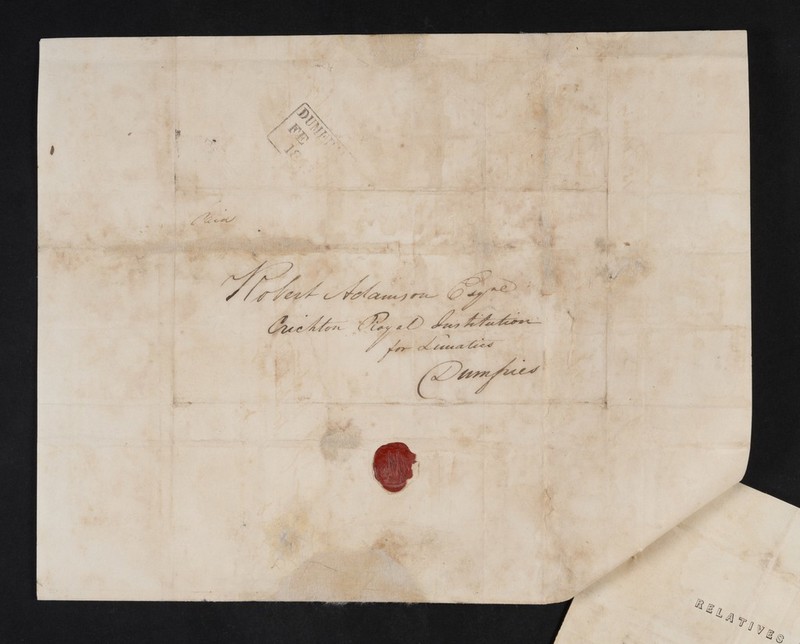 DUMF
FE
18
Paid
Robert Adamson Esqre
Crichton Royal Institution
for Lunatics
Dumfries
RELATIVES